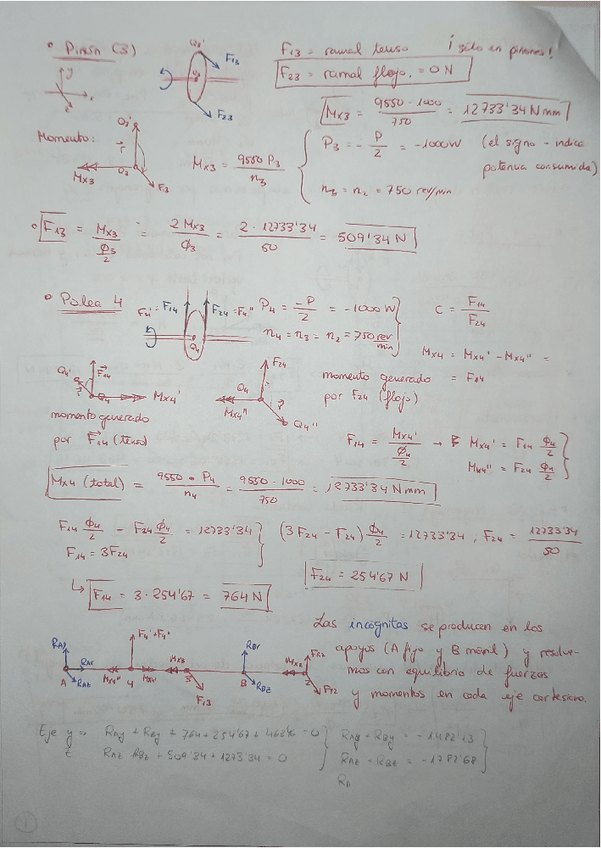 • Piñón (3)
y
x
z
O3'
O3
F13
F23
F13 = ramal tenso ¡sólo en piñones!
F23 = ramal flojo. = 0 N
Mx3 = 9550 · 1000 / 750 = 12733'34 N mm
Momento:
O3'
r
Mx3
O3
F13
Mx3 = 9550 P3 / n3
P3 = - P/2 = -1000 W (el signo - indica
potencia consumida)
n3 = n2 = 750 rev/min
• F13 = Mx3 / (Ø3/2) = 2 Mx3 / Ø3 = 2 · 12733'34 / 50 = 509'34 N
• Polea 4
F4' = F14
F24 = F4''
O4
P4 = -P/2 = -1000 W
n4 = n3 = n2 = 750 rev/min
C = F14 / F24
Mx4 = Mx4' - Mx4'' =
O4'
F14
O4
Mx4'
F24
O4
Mx4''
O4''
momento generado
por F24 (flojo)
momento generado
por F14 (tenso)
F14 = Mx4' / (Ø4/2) → Mx4' = F14 Ø4/2
M44'' = F24 Ø4/2
Mx4 (total) = 9550 · P4 / n4 = 9550 · 1000 / 750 = 12733'34 N mm
F14 Ø4/2 - F24 Ø4/2 = 12733'34
F14 = 3F24
(3 F24 - F24) Ø4/2 = 12733'34, F24 = 12733'34 / 50
F24 = 254'67 N
↳ F14 = 3 · 254'67 = 764 N
Las incógnitas se producen en los
apoyos (A fijo y B móvil) y resolve-
mos con equilibrio de fuerzas
y momentos en cada eje cartesiano.
RAy
RAx
RAz
A
Mx4''
4
Mx4'
F4' + F4''
Mx3
3
F13
RBy
B
RBz
Mx2
2
Eje y: RAy + RBy + 764 + 254'67 + = 0
z RAz RBz + 509'34 + 1273'34 = 0
RAy + RBy = -1482'13
RAz + RBz = -1782'68
1